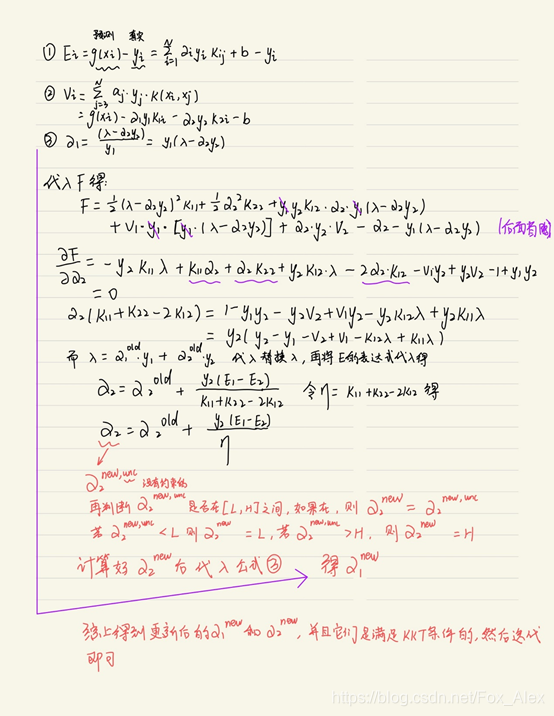 预测 真实
① Ei = g(xi) - yi = Σ_{i=1}^{N} αi yi Kij + b - yi
② Vi = Σ_{j=3}^{N} aj·yj·K(xi,xj)
= g(xi) - α1y1K1i - α2y2K2i - b
③ α1 = (λ-α2y2)/y1 = y1(λ-α2y2)
代入F得:
F = ½(λ-α2y2)²K11 + ½α2²K22 + y1y2K12·α2·y1(λ-α2y2)
+ V1·y1·[y1·(λ-α2y2)] + α2·y2·V2 - α2 - y1(λ-α2y2) (后面省略)
∂F/∂α2 = -y2K11λ + K11α2 + α2K22 + y2K12·λ - 2α2·K12 - V1y2 + y2V2 - 1 + y1y2
= 0
α2(K11+K22-2K12) = 1 - y1y2 - y2V2 + V1y2 - y2K12λ + y2K11λ
= y2(y2 - y1 - V2 + V1 - K12λ + K11λ)
而 λ = α1^old·y1 + α2^old·y2 代入替换λ,再将E的表达式代入得
α2 = α2^old + y2(E1-E2)/(K11+K22-2K12) 令η = K11+K22-2K12 得
α2 = α2^old + y2(E1-E2)/η
α2^new,unc 没有约束的
再判断 α2^new,unc 是否在[L,H]之间,如果在,则 α2^new = α2^new,unc
若 α2^new,unc < L 则 α2^new = L,若 α2^new,unc > H, 则 α2^new = H
计算好 α2^new 后代入公式③ 得 α1^new
综上得到更新后的 α1^new 和 α2^new,并且它们是满足KKT条件的,然后迭代
即可
https://blog.csdn.net/Fox_Alex